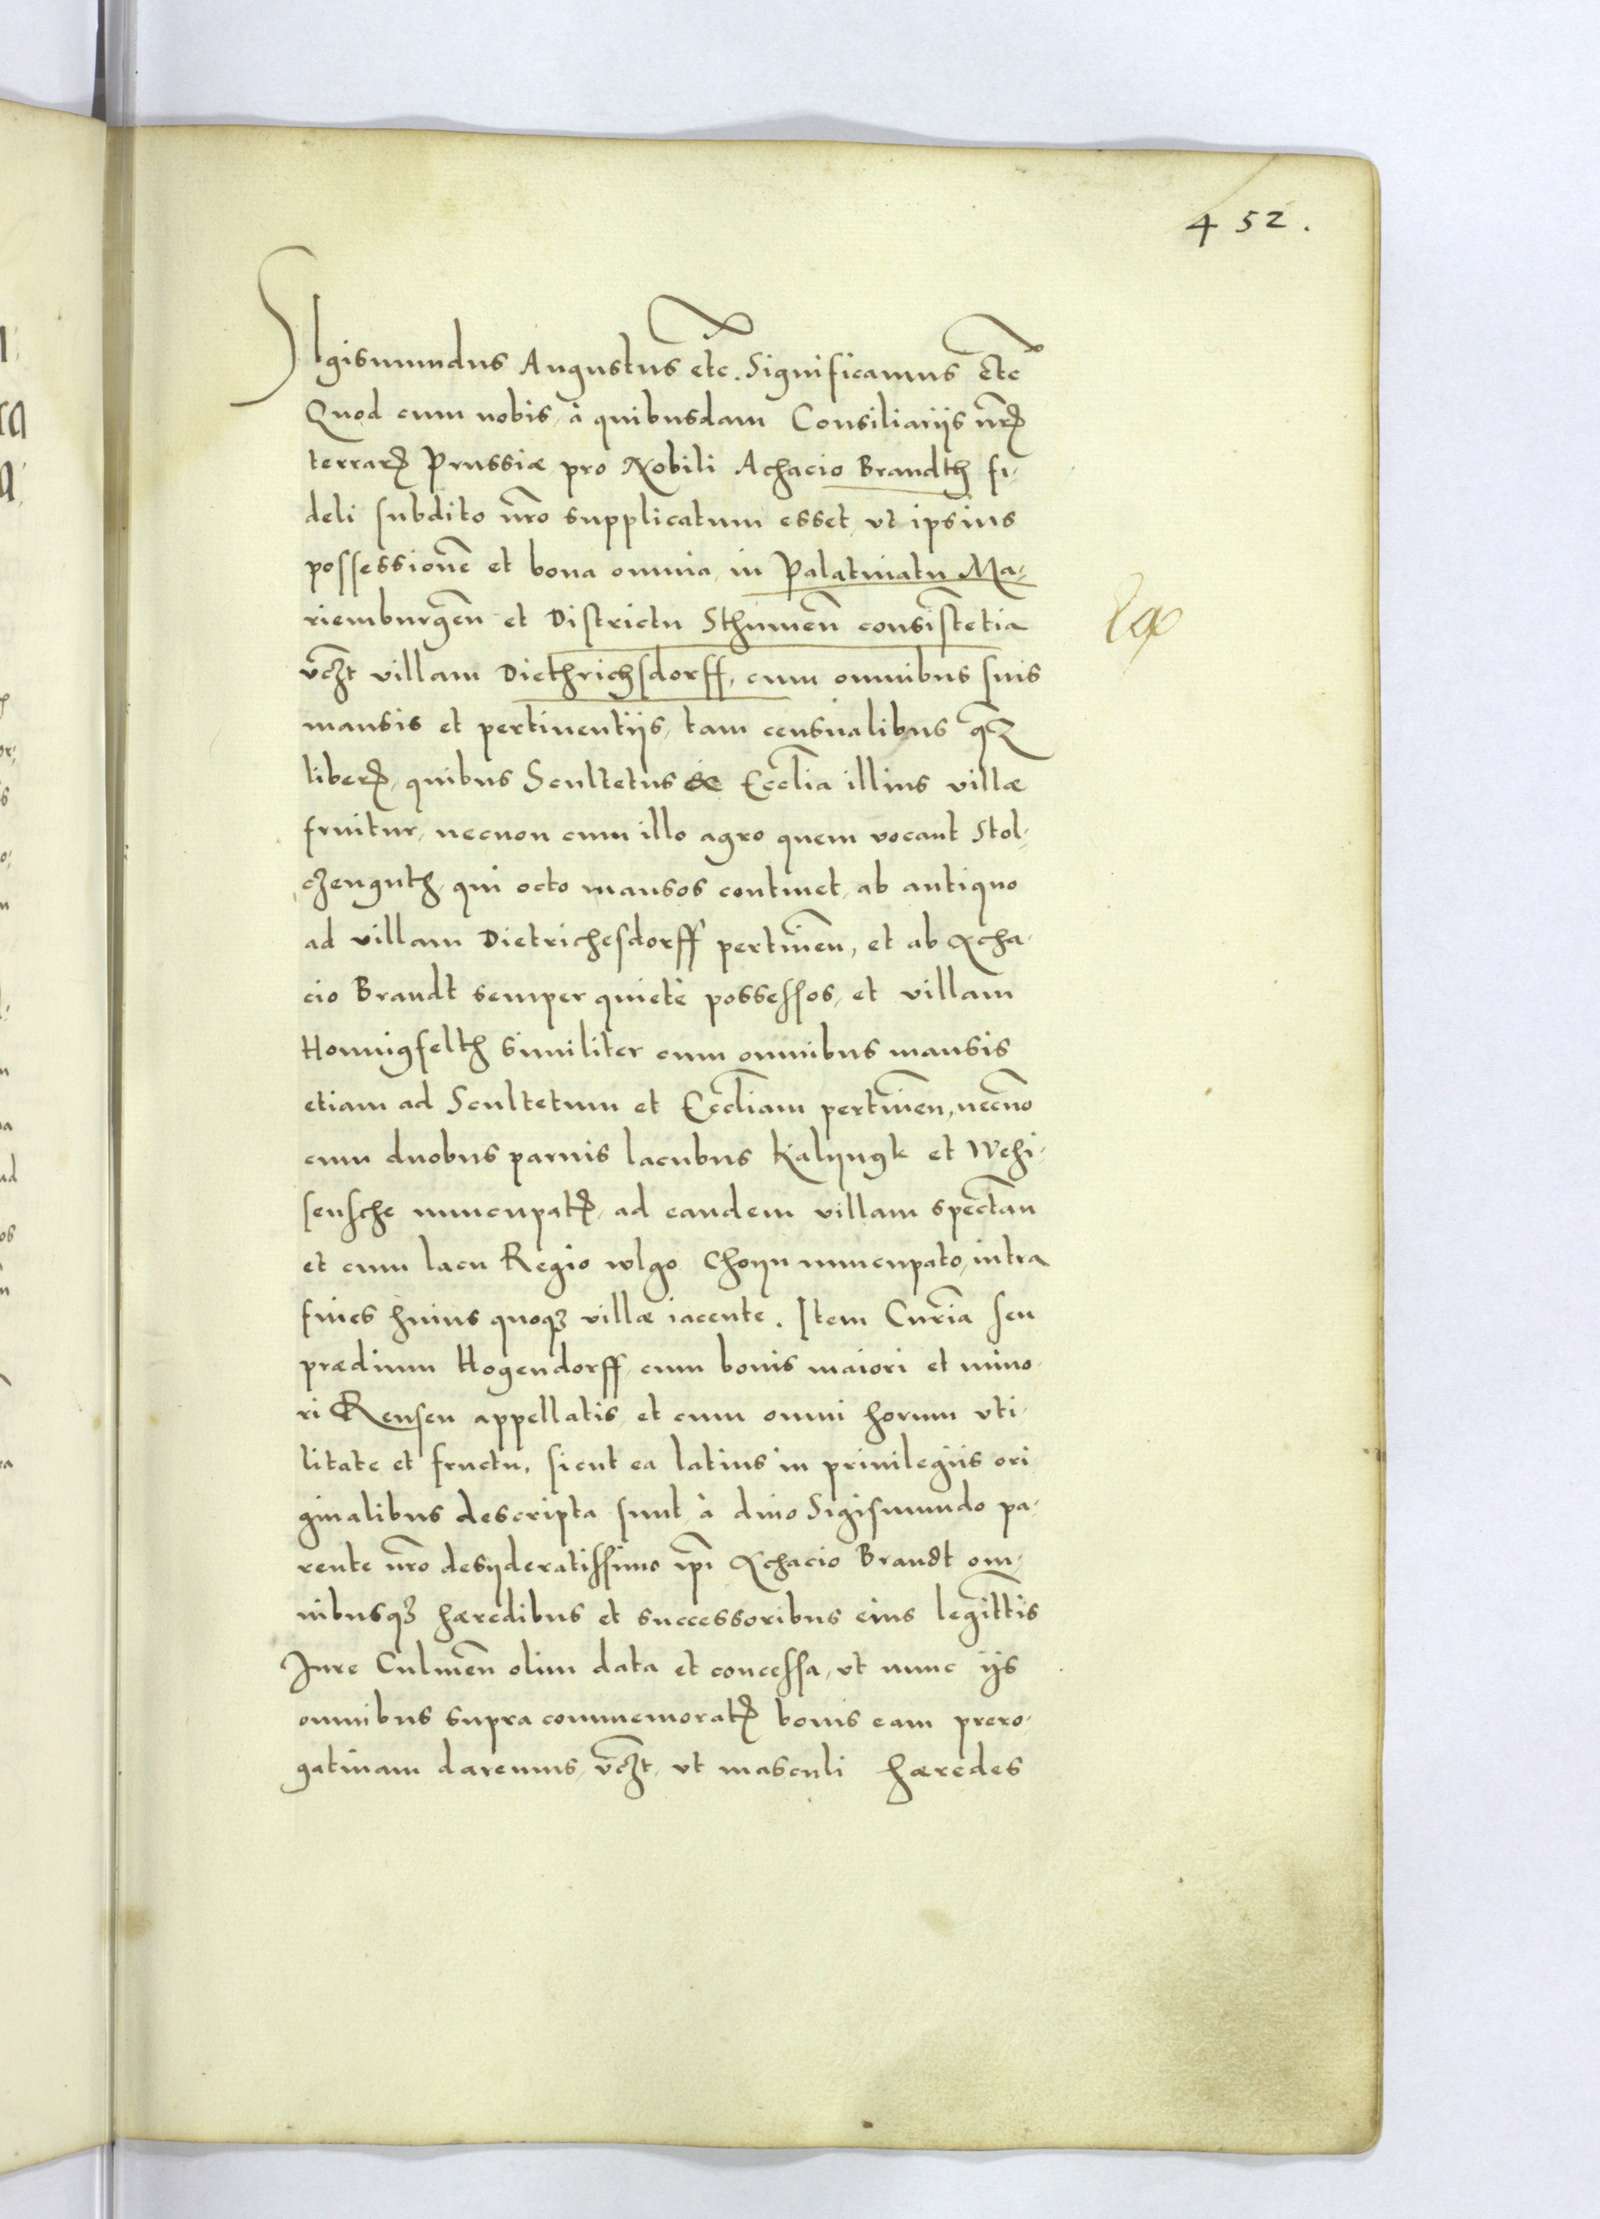 452.
SIgismundus Augustus etc. Significamus etc
Quod cum nobis, à quibusdam Consiliarijs nrꝝ
terrarꝝ Prussiæ pro Nobili Achacio Brandth fi-
deli subdito nro supplicatum esset, vt ipsius
possessionē et bona omnia, in Palatinatu Ma-
riemburgeñ et Districtu Sthumeñ consistētia
vczt villam Diethrichsdorff, cum omnibus suis
mansis et pertinentijs, tam censualibus qʒ
liberꝝ, quibus Scultetus & Ecclia illius villæ
fruitur, necnon cum illo agro quem vocant Stol-
czenguth, qui octo mansos continet, ab antiquo
ad villam Dietrichesdorff pertineñ, et ab Acha-
cio Brandt semper quietè possessos, et villam
Honnigfelth similiter cum omnibus mansis
etiam ad Scultetum et Eccliam pertineñ, necno
cum duobus paruis lacubus Kalyngk et Wehi-
sensche nuncupatꝝ, ad eandem villam spectañ
et cum lacu Regio wlgo Choyn nuncupato, intra
fines huius quoqʒ villæ iacente. Item Curia seu
prædium Hogendorff, cum bonis maiori et mino-
ri Rensen appellatis, et cum omni horum vti-
litate et fructu, sicut ea latius in priuilegijs ori
ginalibus descripta sunt, à diuo Sigismundo pa-
rente nro desyderatissimo ipi Achacio Brandt om-
nibusqʒ hæredibus et successoribus eius legittis
Jure Culmeñ olim data et concessa, vt nunc ijs
omnibus supra commemoratꝝ bonis eam prero-
gatiuam daremus, vczt, vt masculi hæredes